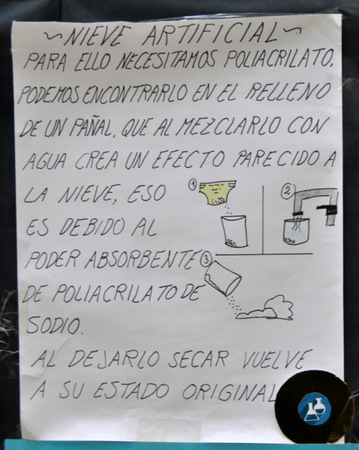 ~NIEVE ARTIFICIAL~
PARA ELLO NECESITAMOS POLIACRILATO,
PODEMOS ENCONTRARLO EN EL RELLENO
DE UN PAÑAL, QUE AL MEZCLARLO CON
AGUA CREA UN EFECTO PARECIDO A
LA NIEVE, ESO
ES DEBIDO AL
PODER ABSORBENTE
DE POLIACRILATO DE
SODIO.
AL DEJARLO SECAR VUELVE
A SU ESTADO ORIGINAL
1
2
3